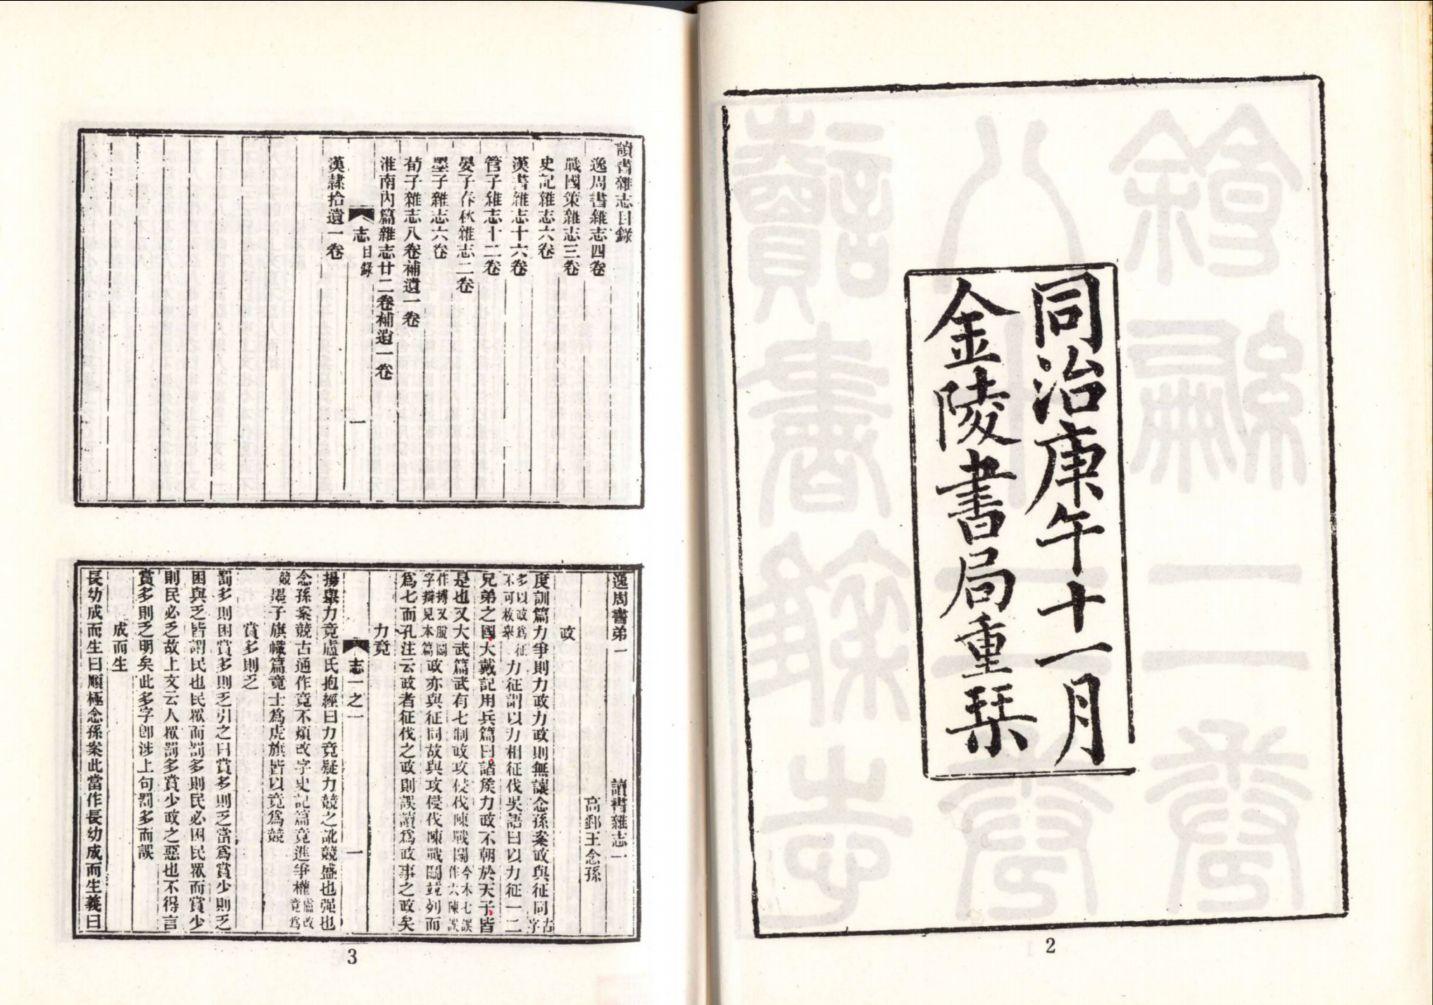 同治庚午十一月
金陵書局重栞
2
讀書雜志目錄
逸周書雜志四卷
戰國策雜志三卷
史記雜志六卷
漢書雜志十六卷
管子雜志十二卷
晏子春秋雜志二卷
墨子雜志六卷
荀子雜志八卷補遺一卷
淮南內篇雜志廿二卷補遺一卷
志 目錄 一
漢隸拾遺一卷
逸周書弟一 讀書雜志一
高郵王念孫
政
度訓篇力爭則力政力政則無讓念孫案政與征同古字
多以政為征不可枚舉力征謂以力相征伐吳語曰以力征一二
兄弟之國大戴記用兵篇曰諸矦力政不朝於天子皆
是也又大武篇武有七制政攻侵伐陳戰鬬今本七誤作六陳誤
作搏又脫鬬字辯見本篇政亦與征同故與攻侵伐陳戰鬬並列而
為七而孔注云政者征伐之政則誤讀為政事之政矣
力竟
志一之一 一
揚舉力竟盧氏抱經曰力竟疑力競之訛競盛也强也
念孫案競古通作竟不煩改字史記篇竟進爭權盧改竟為
競墨子旗幟篇竟士為虎旗皆以竟為競
賞多則乏
罰多則困賞多則乏引之曰賞多則乏當為賞少則乏
困與乏皆謂民也民眾而罰多則民必困民眾而賞少
則民必乏故上文云人眾罰多賞少政之惡也不得言
賞多則乏明矣此多字卽涉上句罰多而誤
成而生
長幼成而生曰順極念孫案此當作長幼成而生義曰
3